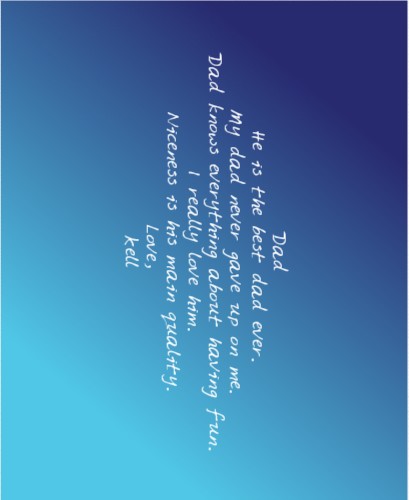 Dad
He is the best dad ever.
My dad never gave up on me.
Dad knows everything about having fun.
I really love him.
Niceness is his main quality.
Love,
Kell